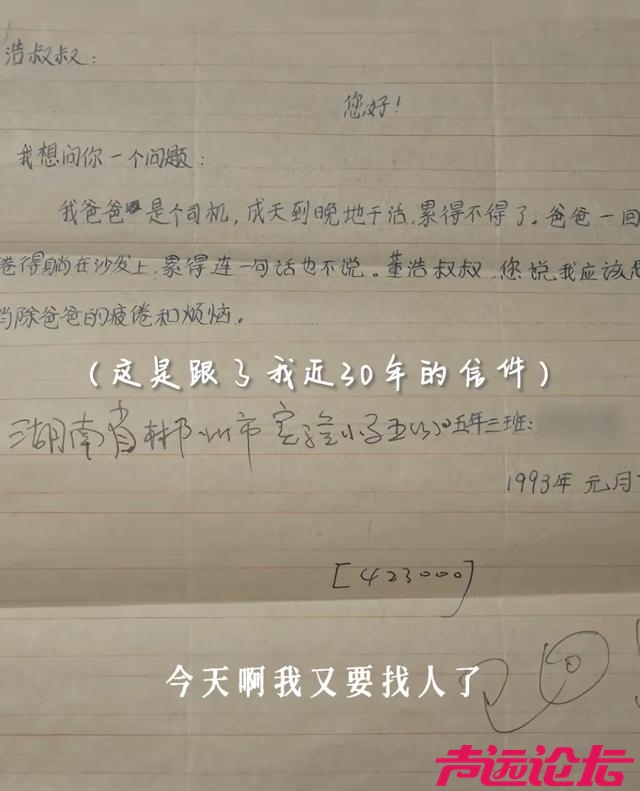 浩叔叔:
您好!
我想问你一个问题:
我爸爸是个司机,成天到晚地干活,累得不得了。爸爸一回
倦得躺在沙发上,累得连一句话也不说。董浩叔叔,您说我应该怎
当除爸爸的疲倦和烦恼。
(这是跟了我近30年的信件)
湖南省郴州市实验小学五(3)五年三班:
1993年元月
[423000]
今天啊我又要找人了
声远论坛